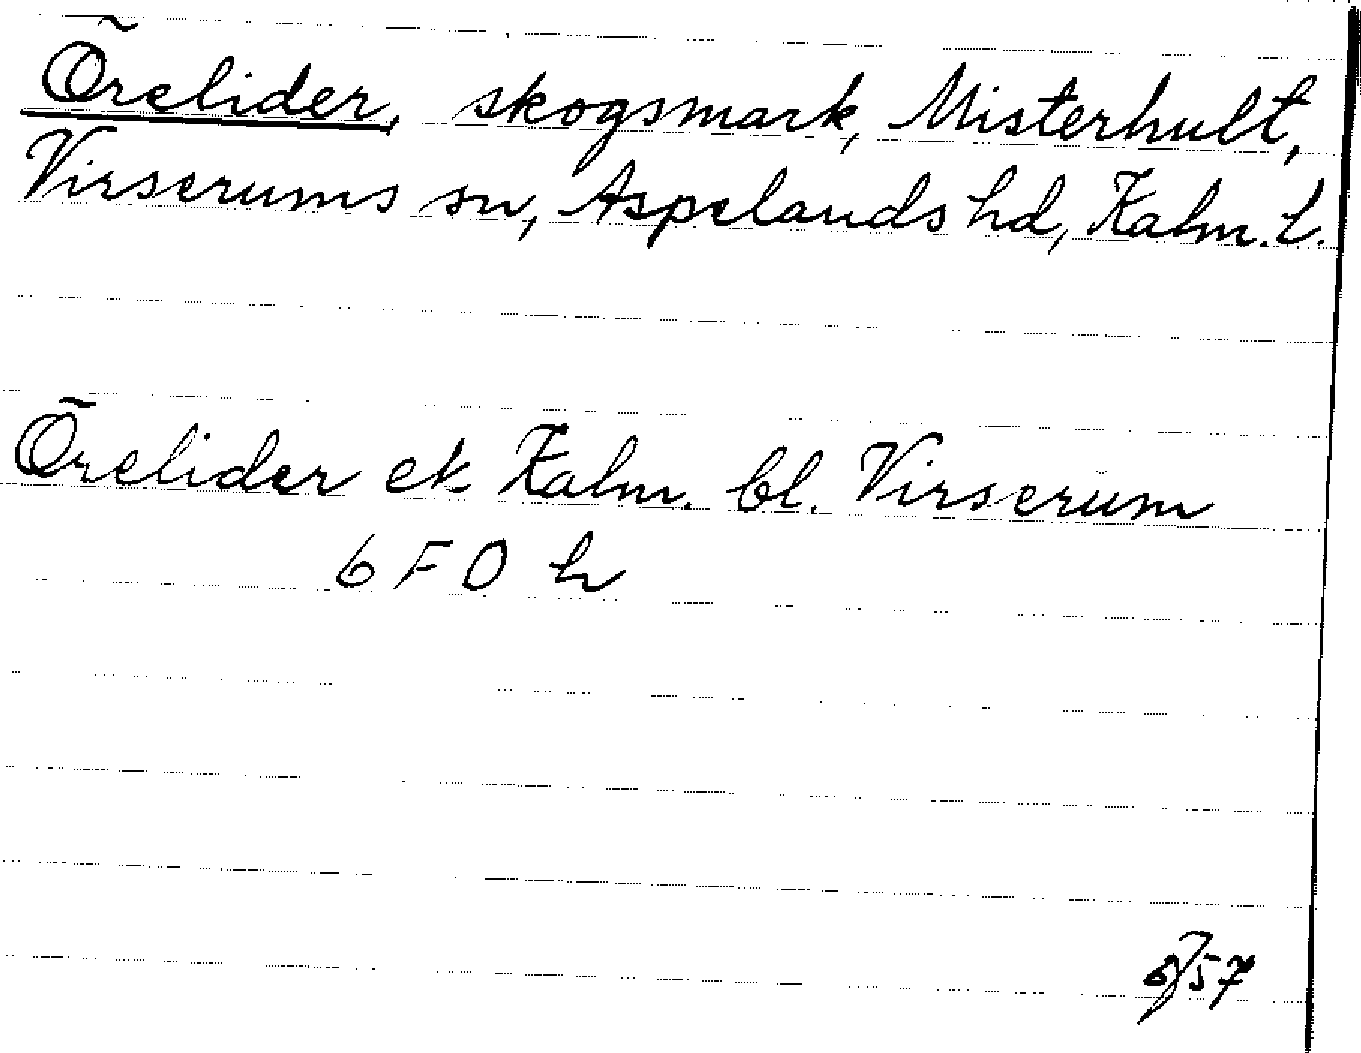 Örelider, skogsmark, Misterhult,
Virserums sn, Aspelands hd, Kalm. l.
Örelider ek Kalm. bl. Virserum
6 F 0 h
57